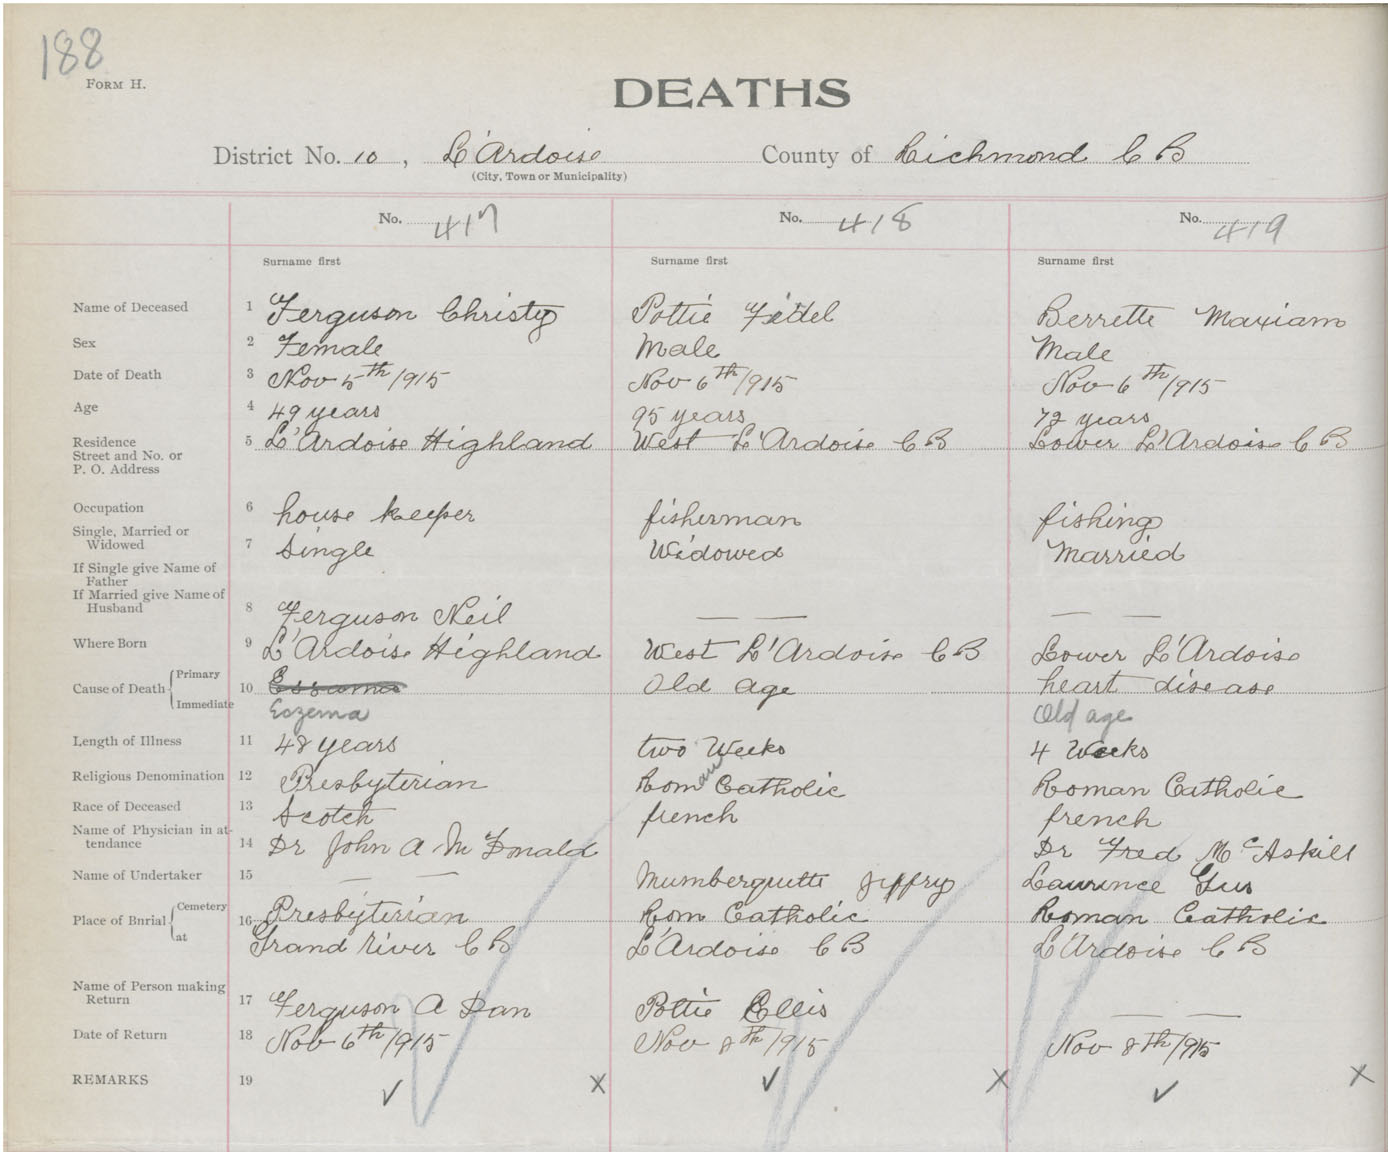 188
FORM H.
DEATHS
District No. 10, L'Ardoise County of Richmond C B
(City, Town or Municipality)
No. 417 No. 418 No. 419
Surname first Surname first Surname first
Name of Deceased 1 Ferguson Christy Pottie Feidel Berrette Maxiam
Sex 2 Female Male Male
Date of Death 3 Nov 5th/915 Nov 6th/915 Nov 6th/915
Age 4 49 years 95 years 72 years
Residence 5 L'Ardoise Highland West L'Ardoise C B Lower L'Ardoise C B
Street and No. or
P. O. Address
Occupation 6 house keeper fisherman fishing
Single, Married or
Widowed 7 Single Widowed Married
If Single give Name of
Father
If Married give Name of
Husband 8 Ferguson Neil — — — —
Where Born 9 L'Ardoise Highland West L'Ardoise C B Lower L'Ardoise
Cause of Death Primary 10 Old age heart disease
Immediate Eczema Old age
Length of Illness 11 48 years two Weeks 4 Weeks
Religious Denomination 12 Presbyterian Roman Catholic Roman Catholic
Race of Deceased 13 Scotch french french
Name of Physician in at-
tendance 14 Dr John A McDonald Dr Fred McAskill
Name of Undertaker 15 — — Mumberquette Jeffry Laurence Gus
Place of Bnrial Cemetery 16 Presbyterian Rom Catholic Roman Catholic
at Grand river C B L'Ardoise C B L'Ardoise C B
Name of Person making
Return 17 Ferguson A Dan Pottie Ellis — —
Date of Return 18 Nov 6th/915 Nov 8th/915 Nov 8th/915
REMARKS 19 ✓ x ✓ x ✓ x